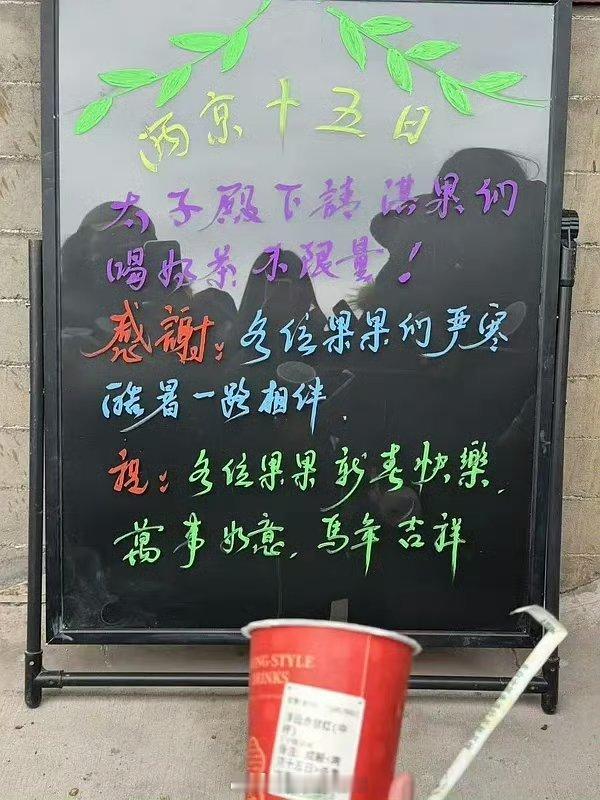 两京十五日
太子殿下請淇果们
喝奶茶不限量！
感謝：各位果果们严寒
酷暑一路相伴.
祝：各位果果新春快樂.
萬事如意.馬年吉祥
ING-STYLE
DRINKS